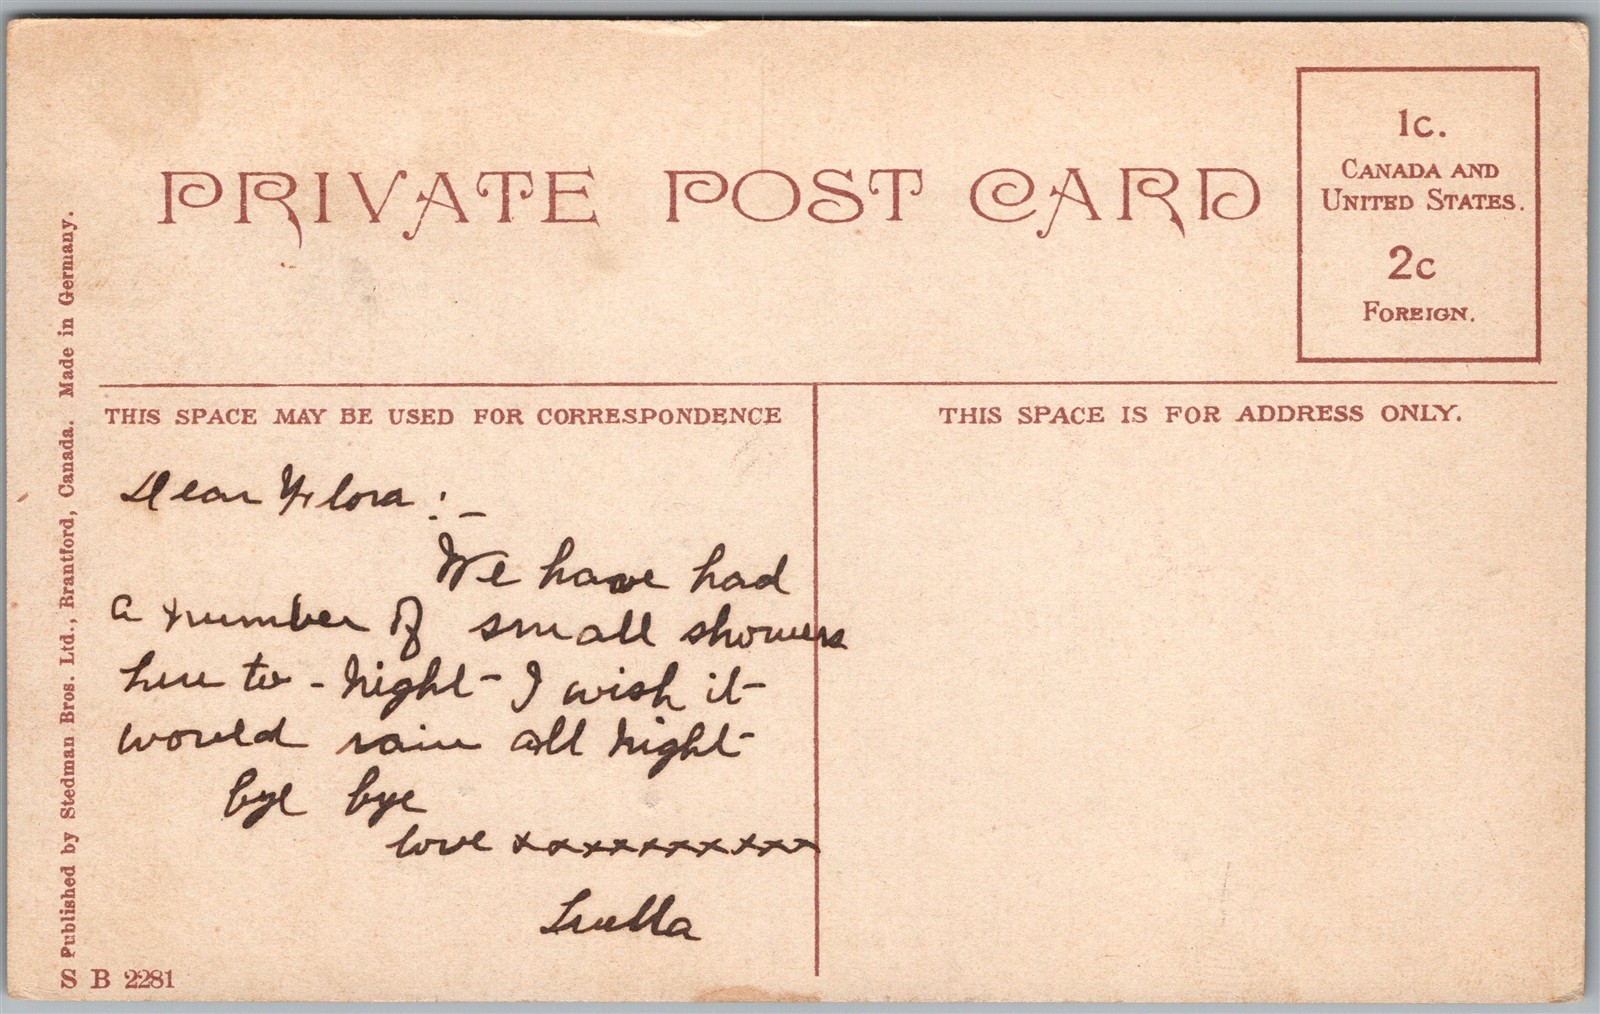 PRIVATE POST CARD
1c.
CANADA AND
UNITED STATES.
2c
FOREIGN.
THIS SPACE MAY BE USED FOR CORRESPONDENCE
THIS SPACE IS FOR ADDRESS ONLY.
Dear Flora :-
We have had
a number of small showers
here to-night- I wish it
would rain all night
bye bye
love xxxxxxxxxxx
Luella
Published by Stedman Bros. Ltd., Brantford, Canada. Made in Germany.
S B 2281